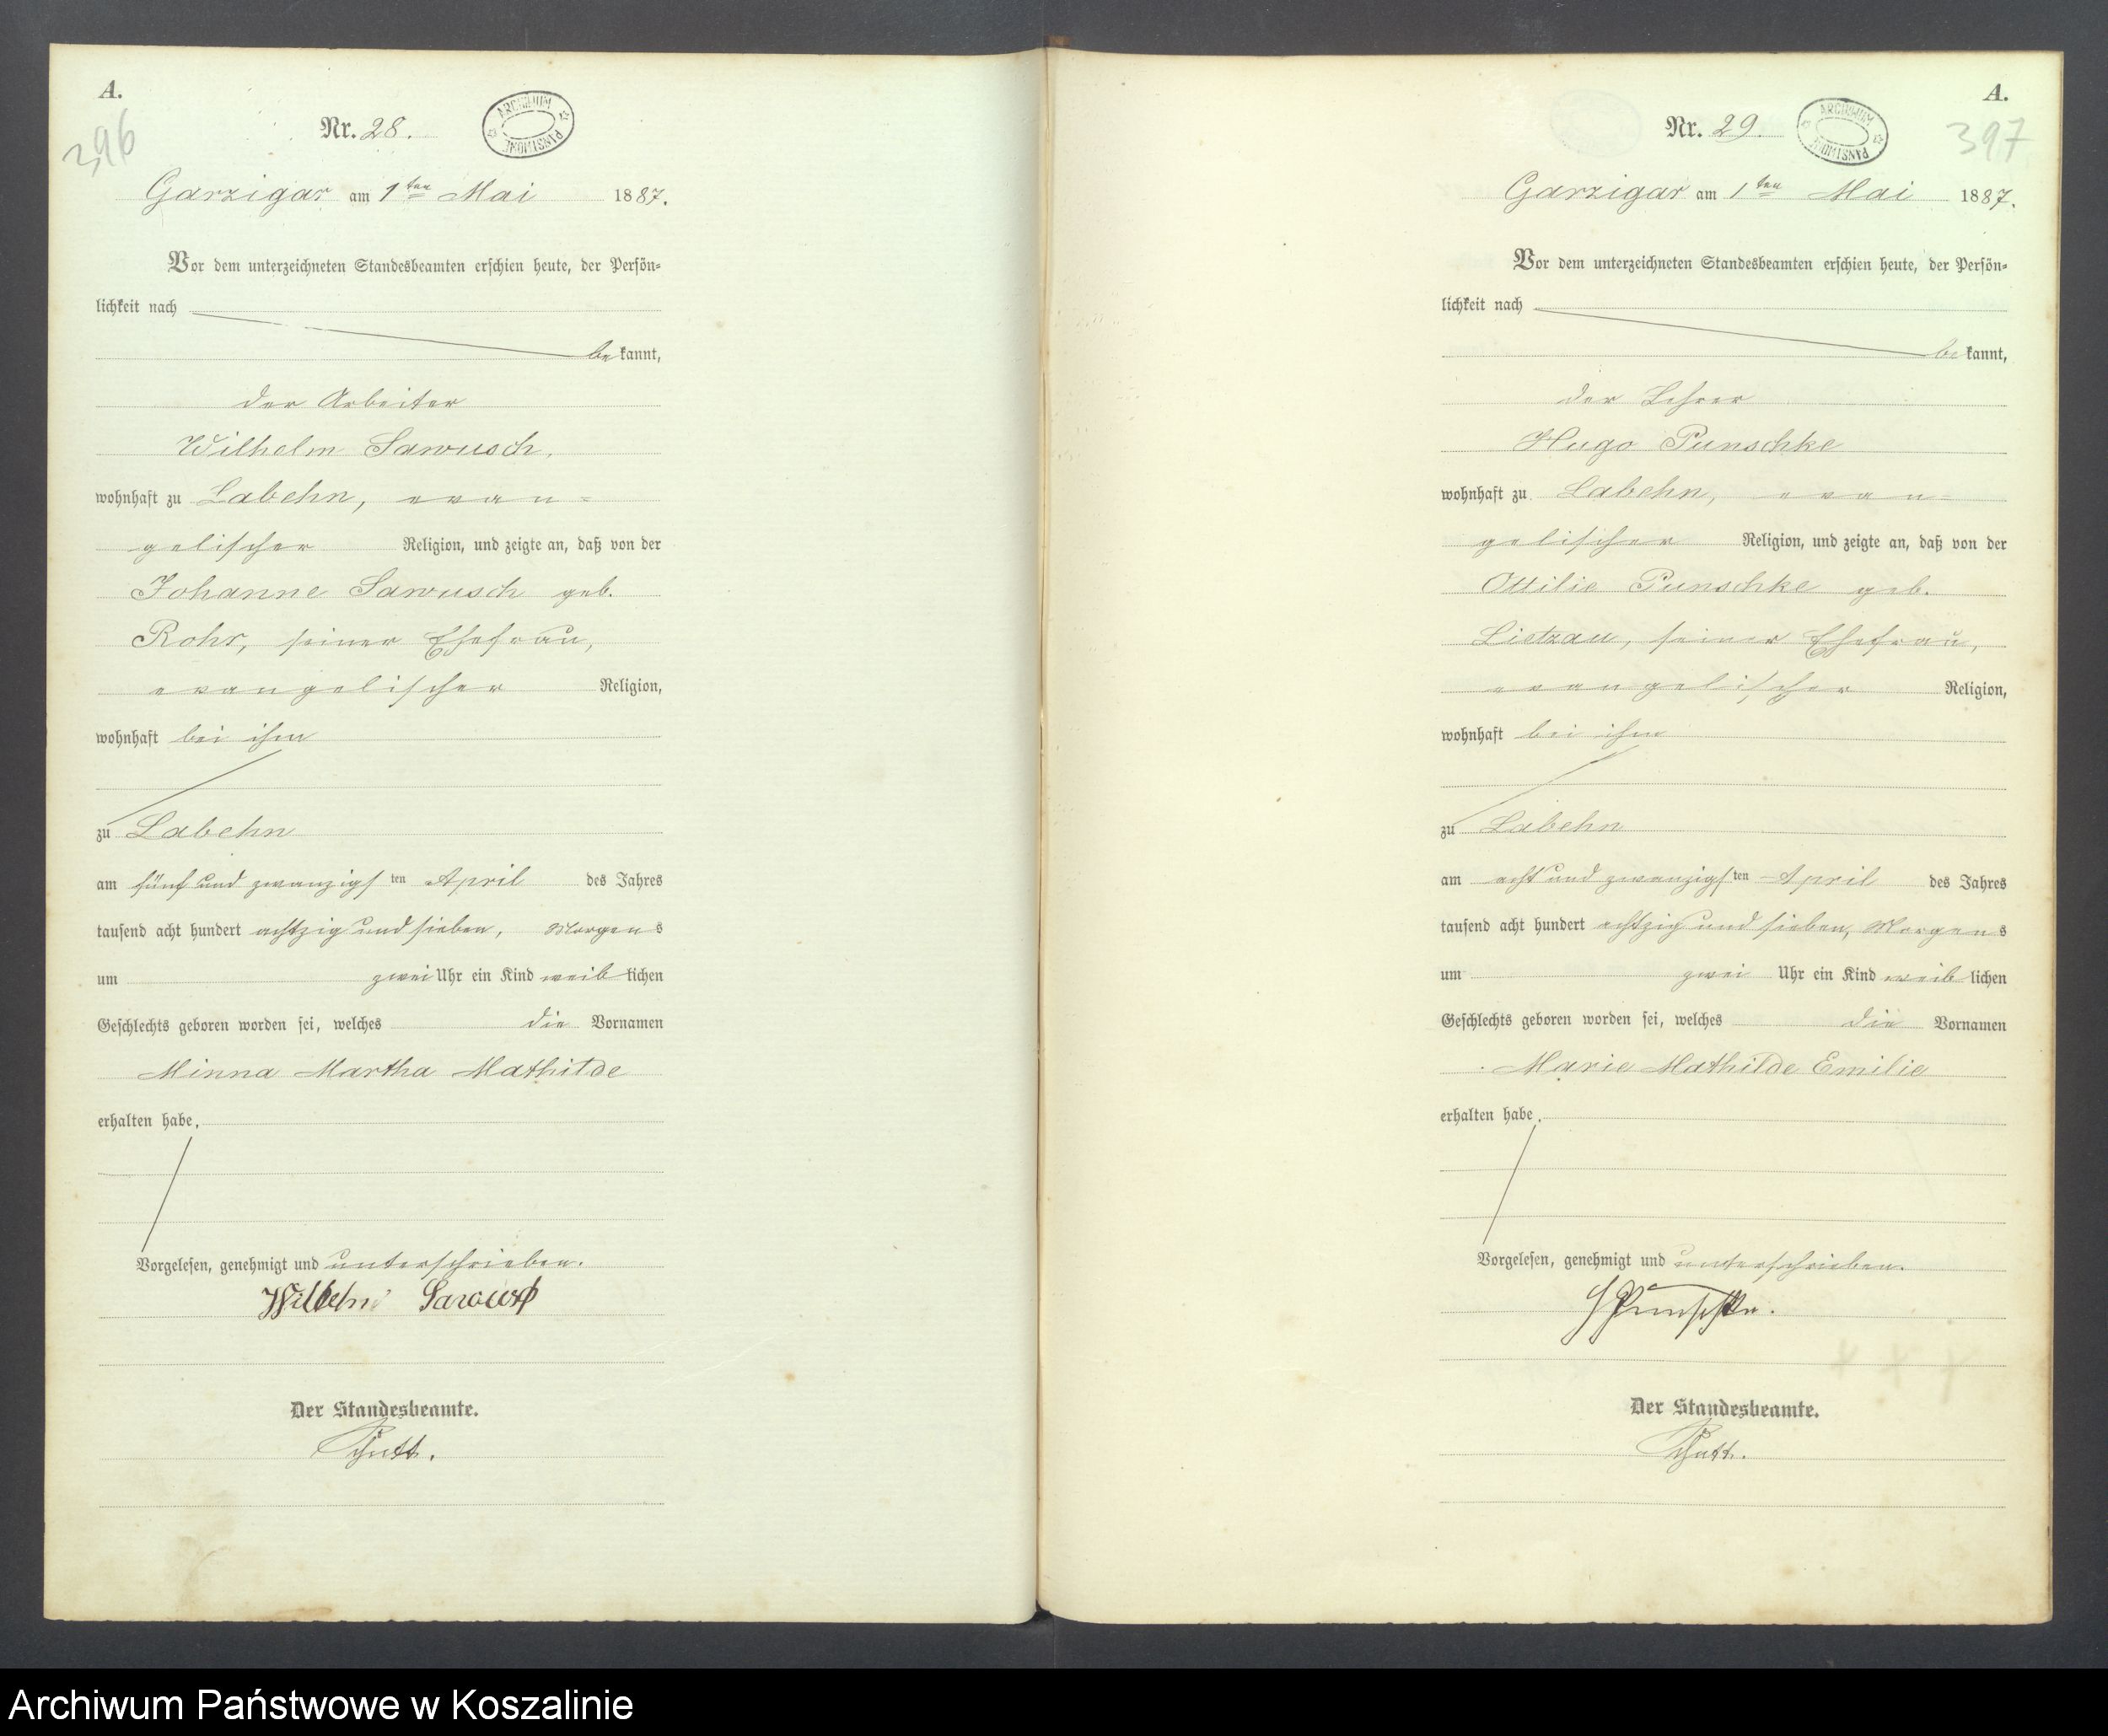 A.
396
Nr. 28.
ARCHIWUM PAŃSTWOWE
Garzigar am 1ten Mai 1887.
Vor dem unterzeichneten Standesbeamten erschien heute, der Persön=
lichkeit nach
bekannt,
der Arbeiter
Wilhelm Sawusch,
wohnhaft zu Labehn, evan=
gelischer Religion, und zeigte an, daß von der
Johanne Sawusch geb.
Rohr, seiner Ehefrau,
evangelischer Religion,
wohnhaft bei ihm
zu Labehn
am fünf und zwanzigsten April des Jahres
tausend acht hundert achtzig und sieben, Morgens
um zwei Uhr ein Kind weiblichen
Geschlechts geboren worden sei, welches die Vornamen
Minna Martha Mathilde
erhalten habe.
Vorgelesen, genehmigt und unterschrieben.
Wilhelm Sawusch
Der Standesbeamte.
A.
397
Nr. 29.
ARCHIWUM PAŃSTWOWE
Garzigar am 1ten Mai 1887.
Vor dem unterzeichneten Standesbeamten erschien heute, der Persön=
lichkeit nach
bekannt,
der Lehrer
Hugo Punschke
wohnhaft zu Labehn, evan=
gelischer Religion, und zeigte an, daß von der
Ottilie Punschke geb.
Lietzau, seiner Ehefrau,
evangelischer Religion,
wohnhaft bei ihm
zu Labehn
am acht und zwanzigsten April des Jahres
tausend acht hundert achtzig und sieben, Morgens
um zwei Uhr ein Kind weiblichen
Geschlechts geboren worden sei, welches die Vornamen
Marie Mathilde Emilie
erhalten habe.
Vorgelesen, genehmigt und unterschrieben.
H Punschke.
Der Standesbeamte.
Archiwum Państwowe w Koszalinie